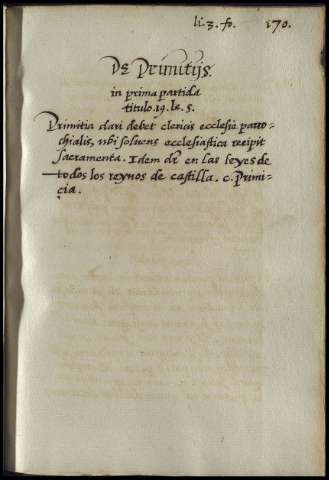 li. 3. fo. 170.
De Primitijs.
in prima partida
titulo. 19. le. 5.
Primitia dari debet clericis ecclesie parro-
chialis, ubi soluens ecclesiastica recipit
sacramenta. Idem dr̄ en las leyes de
todos los reynos de castilla. c. Primi-
cia.